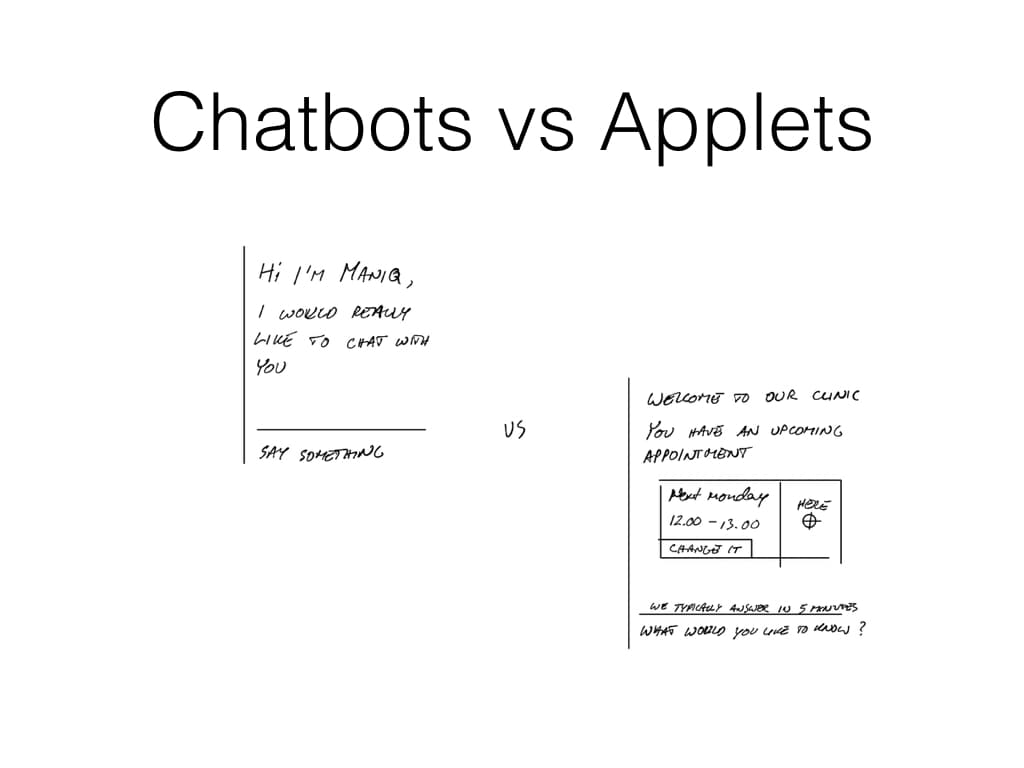 Chatbots vs Applets
HI I'M MANIQ,
I WOULD REALLY
LIKE TO CHAT WITH
YOU
SAY SOMETHING
VS
WELCOME TO OUR CLINIC
YOU HAVE AN UPCOMING
APPOINTMENT
Next Monday
12.00 - 13.00
CHANGE IT
HERE
WE TYPICALLY ANSWER IN 5 MINUTES
WHAT WOULD YOU LIKE TO KNOW ?